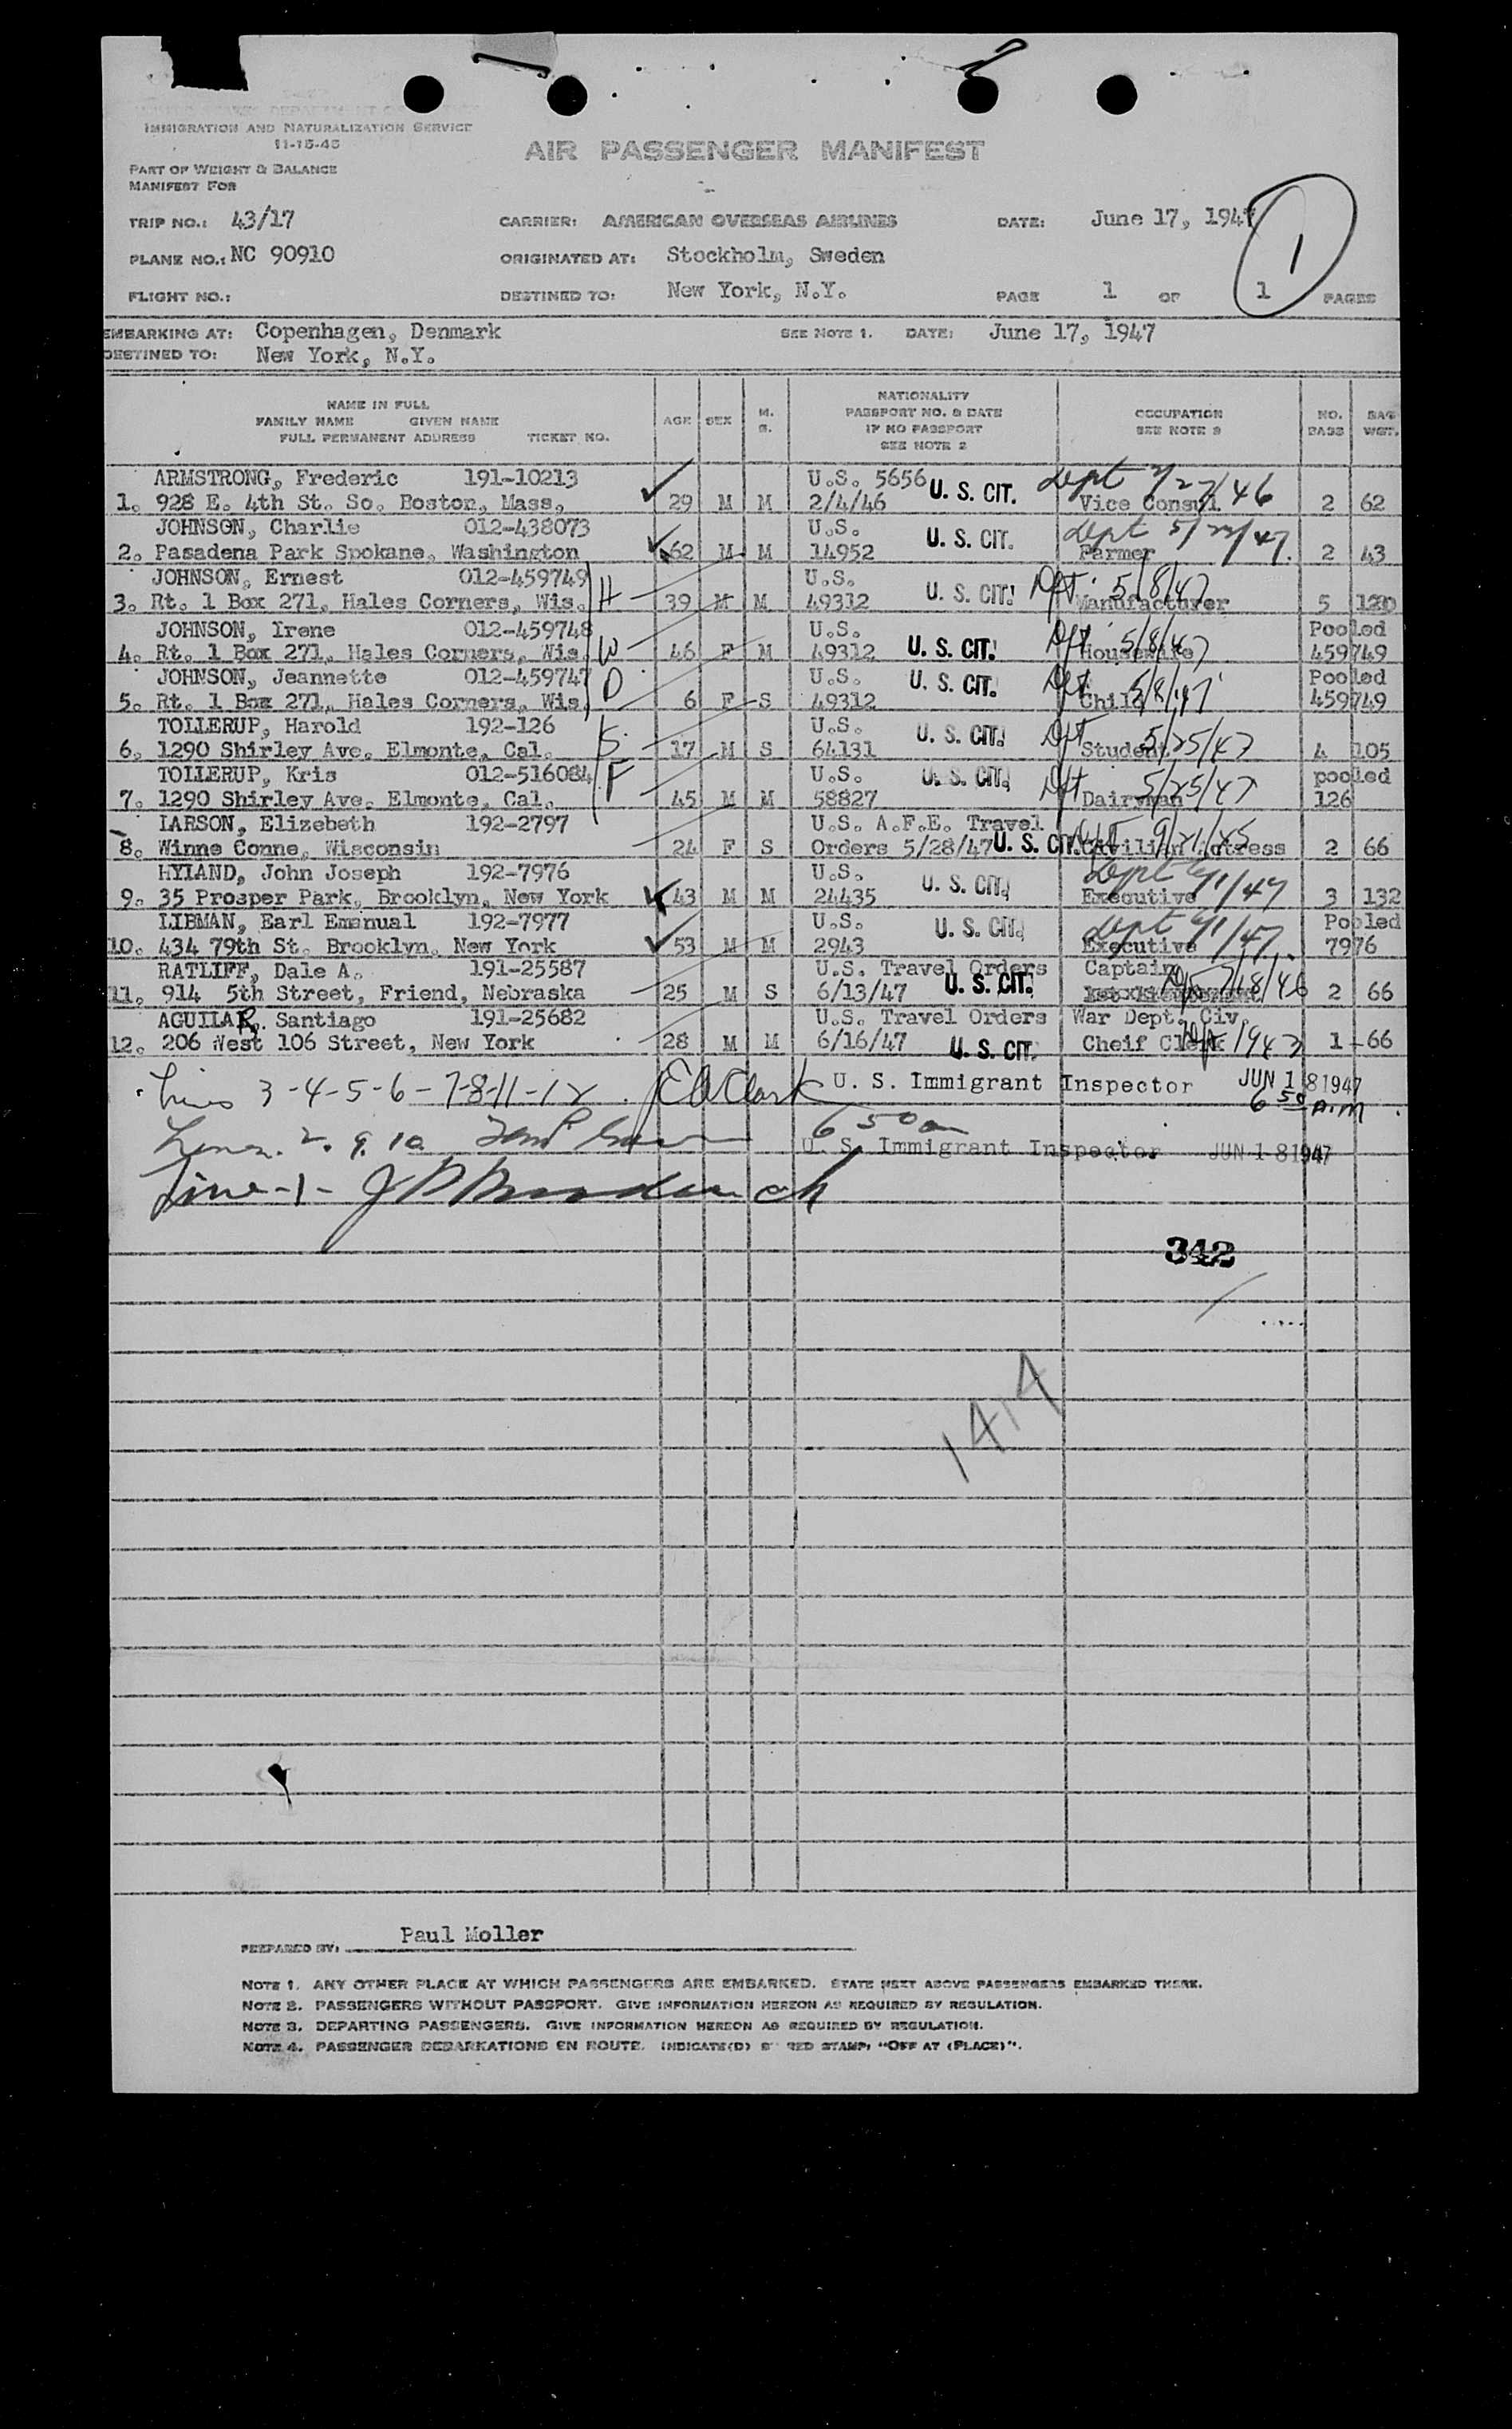 IMMIGRATION AND NATURALIZATION SERVICE
11-15-45
AIR PASSENGER MANIFEST
PART OF WEIGHT & BALANCE
MANIFEST FOR
TRIP NO.: 43/17 CARRIER: AMERICAN OVERSEAS AIRLINES DATE: June 17, 1947
1
PLANE NO.: NC 90910 ORIGINATED AT: Stockholm, Sweden
FLIGHT NO.: DESTINED TO: New York, N.Y. PAGE 1 OF 1 PAGES
EMBARKING AT: Copenhagen, Denmark SEE NOTE 1. DATE: June 17, 1947
DESTINED TO: New York, N.Y.
NAME IN FULL
FAMILY NAME GIVEN NAME
FULL PERMANENT ADDRESS TICKET NO.
AGE SEX M. S.
NATIONALITY
PASSPORT NO. & DATE
IF NO PASSPORT
SEE NOTE 2
OCCUPATION
SEE NOTE 3
NO. BAGS BAG WGT.
ARMSTRONG, Frederic 191-10213 U.S. 5656 U. S. CIT. Dept
1. 928 E. 4th St. So. Boston, Mass. 29 M M 2/4/46 Vice Consul 2 62
JOHNSON, Charlie 012-438073 U.S. U. S. CIT. Dept
2. Pasadena Park Spokane, Washington 62 M M 14952 Farmer 2 43
JOHNSON, Ernest 012-459749 U.S. U. S. CIT. Dpt 5/8/47
3. Rt. 1 Box 271, Hales Corners, Wis. H 39 M M 49312 Manufacturer 5 120
JOHNSON, Irene 012-459748 U.S. U. S. CIT. Dpt 5/8/47 Pooled
4. Rt. 1 Box 271, Hales Corners, Wis. W 46 F M 49312 Housewife 459749
JOHNSON, Jeannette 012-459747 U.S. U. S. CIT. Dpt 5/8/47 Pooled
5. Rt. 1 Box 271, Hales Corners, Wis. D 6 F S 49312 Child 459749
TOLLERUP, Harold 192-126 U.S. U. S. CIT. Dpt 5/25/47
6. 1290 Shirley Ave. Elmonte, Cal. S 17 M S 64131 Student 4 105
TOLLERUP, Kris 012-516084 U.S. U. S. CIT. Dpt 5/25/47 pooled
7. 1290 Shirley Ave. Elmonte, Cal. F 45 M M 58827 Dairyman 126
LARSON, Elizebeth 192-2797 U.S. A.F.E. Travel 9/21/45
8. Winne Conne, Wisconsin 24 F S Orders 5/28/47 U. S. CIT. Civilian Actress 2 66
HYLAND, John Joseph 192-7976 U.S. U. S. CIT. Dept
9. 35 Prosper Park, Brooklyn, New York 43 M M 24435 Executive 3 132
LIBMAN, Earl Emanual 192-7977 U.S. U. S. CIT. Dept Pooled
10. 434 79th St. Brooklyn, New York 53 M M 2943 Executive 7976
RATLIFF, Dale A. 191-25587 U.S. Travel Orders Captain
11. 914 5th Street, Friend, Nebraska 25 M S 6/13/47 U. S. CIT. 2 66
AGUILAR, Santiago 191-25682 U.S. Travel Orders War Dept. Civ.
12. 206 West 106 Street, New York 28 M M 6/16/47 U. S. CIT. Cheif Clerk 1 66
Lines 3-4-5-6-7-8-11-12 U. S. Immigrant Inspector JUN 18 1947
6 50 a.m
Lines. 2. 9. 10 6 50 am
U. S. Immigrant Inspector JUN 18 1947
Line-1-
342
1414
PREPARED BY: Paul Moller
NOTE 1. ANY OTHER PLACE AT WHICH PASSENGERS ARE EMBARKED. STATE NEXT ABOVE PASSENGERS EMBARKED THERE.
NOTE 2. PASSENGERS WITHOUT PASSPORT. GIVE INFORMATION HEREON AS REQUIRED BY REGULATION.
NOTE 3. DEPARTING PASSENGERS. GIVE INFORMATION HEREON AS REQUIRED BY REGULATION.
NOTE 4. PASSENGER DEBARKATIONS EN ROUTE. INDICATE(D) BY RED STAMP: "OFF AT (PLACE)".